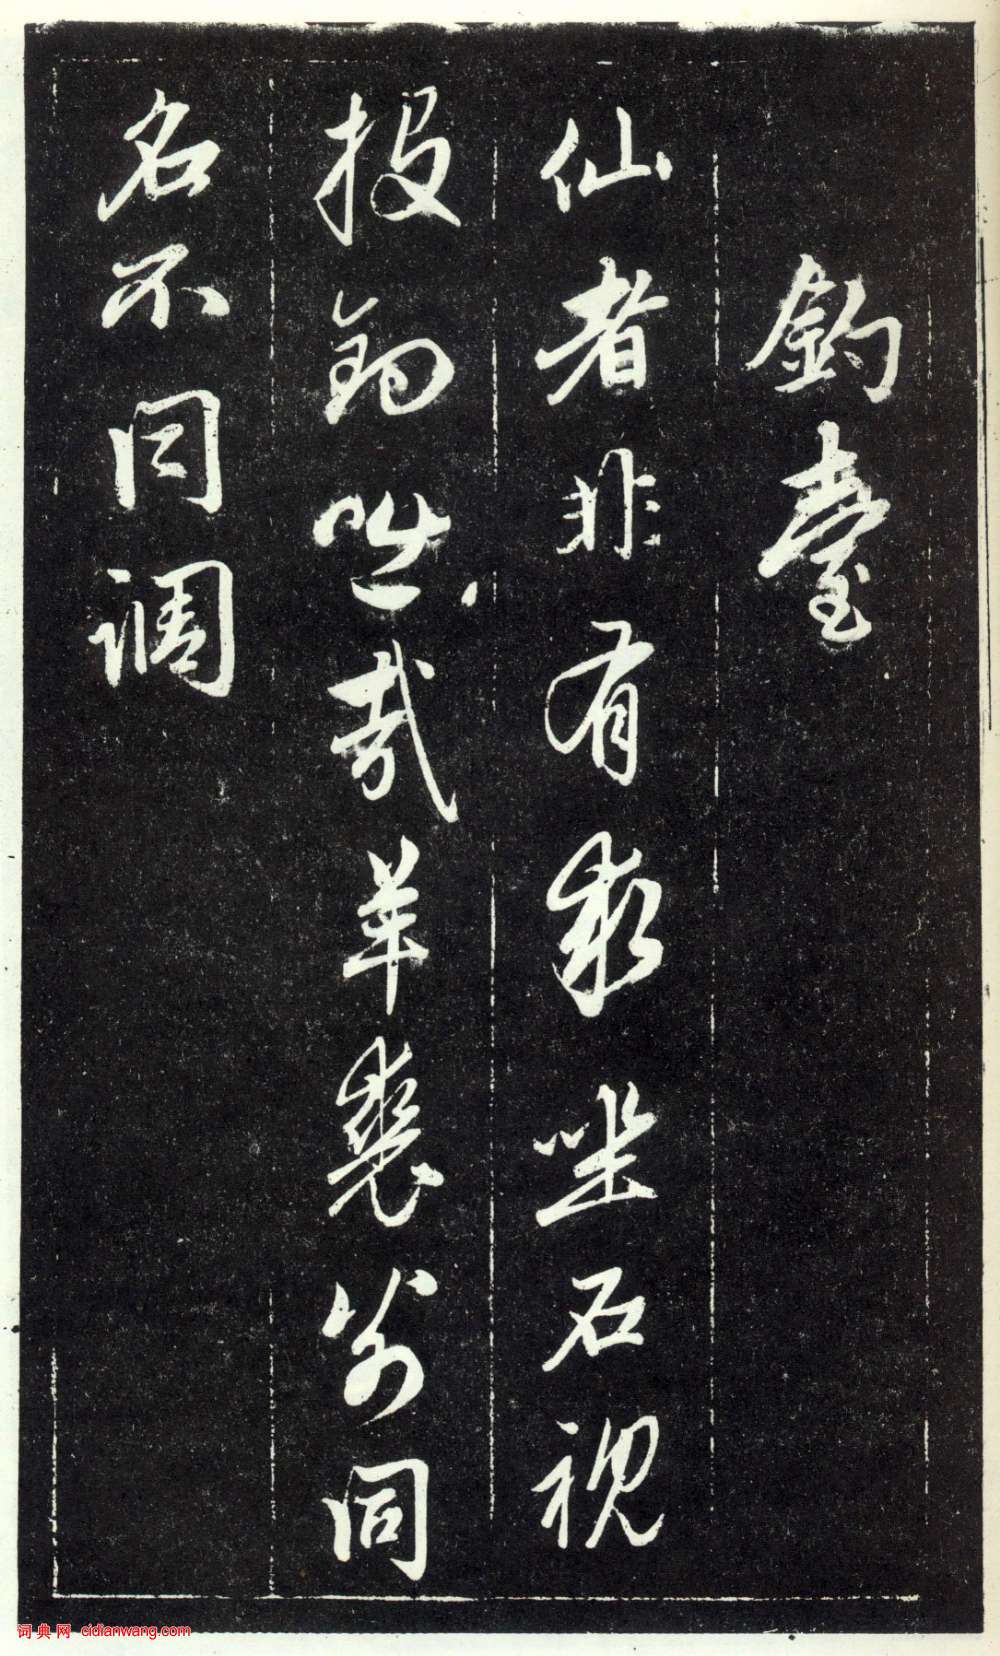 釣臺
仙者非有求坐石視
投釣咄哉羊裘翁同
名不同調
词典网 cidianwang.com